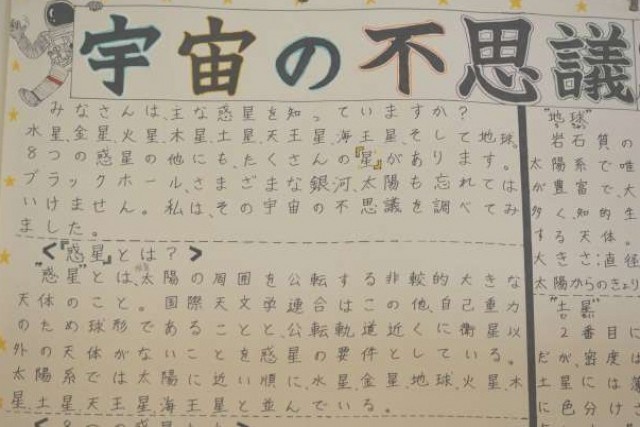 宇宙の不思議
みなさんは、主な惑星を知っていますか?
水星、金星、火星、木星、土星、天王星、海王星、そして地球。
8つの惑星の他にも、たくさんの『星』があります。
ブラックホール、さまざまな銀河、太陽も忘れては
いけません。私は、その宇宙の不思議を調べてみ
ました。
<『惑星』とは?>
"惑星"とは、太陽の周囲を公転する非較的大きな
天体のこと。国際天文学連合はこの他、自己重力
のため球形であることと、公転軌道近くに衛星以
外の天体がないことを惑星の要件としている。
太陽系では太陽に近い順に、水星、金星、地球、火星、木
星、土星、天王星、海王星と並んでいる。
"地球"
岩石質の
太陽系で唯
が豊富で、大
多く、知的生
する天体。
大きさ:直径
太陽からのきょり
"土星"
2番目に
だが、密度は
土星には薄
に色分け